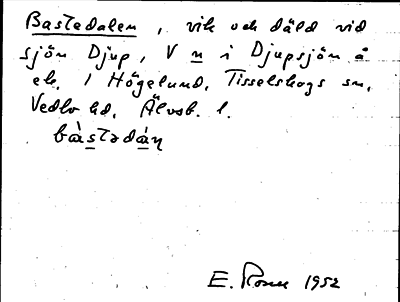 Bastedalen, vik och däld vid
sjön Djup, V n i Djupsjön å
ek. 1 Högelund, Tisselskogs sn,
Vedbo hd, Älvsb. l.
bàstədán
E. Rosell 1952